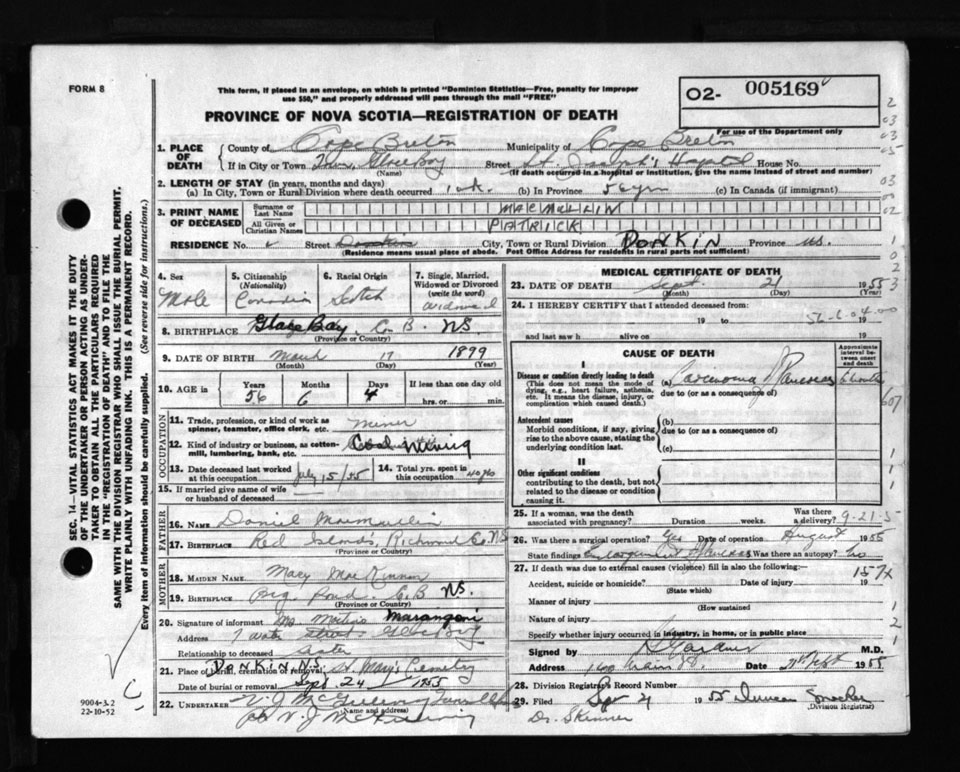 FORM 8
This form, if placed in an envelope, on which is printed "Dominion Statistics—Free, penalty for improper
use $50," and properly addressed will pass through the mail "FREE"
O2- 005169
PROVINCE OF NOVA SCOTIA—REGISTRATION OF DEATH
For use of the Department only
1. PLACE OF DEATH
County of Cape Breton Municipality of Cape Breton
If in City or Town Glace Bay Street St. Joseph's Hospital House No.
(Name) (If death occurred in a hospital or institution, give the name instead of street and number)
2. LENGTH OF STAY (in years, months and days)
(a) In City, Town or Rural Division where death occurred 1 wk. (b) In Province 56 yrs (c) In Canada (if immigrant)
3. PRINT NAME OF DECEASED
Surname or Last Name MACMULLIN
All Given or Christian Names PATRICK
RESIDENCE No. Street City, Town or Rural Division DONKIN Province NS.
(Residence means usual place of abode. Post Office Address for residents in rural parts not sufficient)
4. Sex Male
5. Citizenship (Nationality) Canadian
6. Racial Origin Scotch
7. Single, Married, Widowed or Divorced (write the word) Widowed
8. BIRTHPLACE Glace Bay, C.B. NS.
(Province or Country)
9. DATE OF BIRTH March 17 1899
(Month) (Day) (Year)
10. AGE in Years 56 Months 6 Days 4 If less than one day old hrs. or min.
11. Trade, profession, or kind of work as spinner, teamster, office clerk, etc. Miner
12. Kind of industry or business, as cotton-mill, lumbering, bank, etc. Coal Mining
13. Date deceased last worked at this occupation July 15/55
14. Total yrs. spent in this occupation 40 yrs
15. If married give name of wife or husband of deceased
FATHER
16. NAME Daniel MacMullin
17. BIRTHPLACE Red Islands, Richmond Co. NS
(Province or Country)
MOTHER
18. MAIDEN NAME Mary MacKinnon
19. BIRTHPLACE Big Pond C.B NS.
(Province or Country)
20. Signature of informant Marangoni
Address 7 Water Street Glace Bay
Relationship to deceased Sister
21. Place of burial, cremation or removal DONKIN N.S. St. Mary's Cemetery
Date of burial or removal Sept. 24 1955
22. UNDERTAKER V. J. McGillivray
(Name and address)
MEDICAL CERTIFICATE OF DEATH
23. DATE OF DEATH Sept. 21 1955
(Month) (Day) (Year)
24. I HEREBY CERTIFY that I attended deceased from:
19 to 19
and last saw h alive on 19
CAUSE OF DEATH
Approximate interval between onset and death
I
Disease or condition directly leading to death (a) Carcinoma Pancreas 6 months
(This does not mean the mode of dying, e.g., heart failure, asthenia, etc. It means the disease, injury, or complication which caused death.)
due to (or as a consequence of)
Antecedent causes (b)
Morbid conditions, if any, giving rise to the above cause, stating the underlying condition last.
due to (or as a consequence of)
(c)
II
Other significant conditions contributing to the death, but not related to the disease or condition causing it.
25. If a woman, was the death associated with pregnancy? Duration weeks. Was there a delivery?
26. Was there a surgical operation? Yes Date of operation August 1955
State findings Enlargement Pancreas Was there an autopsy? No
27. If death was due to external causes (violence) fill in also the following:— 157x
Accident, suicide or homicide? Date of injury 19
(State which)
Manner of injury
(How sustained)
Nature of injury
Specify whether injury occurred in industry, in home, or in public place
Signed by Gardner M.D.
Address Date 21 Sept 1955
28. Division Registrar's Record Number
29. Sep 21 1955 Duncan
(Division Registrar)
Dr. Skinner
SEC. 14—VITAL STATISTICS ACT MAKES IT THE DUTY
OF THE UNDERTAKER OR PERSON ACTING AS UNDER-
TAKER TO OBTAIN ALL THE PARTICULARS REQUIRED
IN THE "REGISTRATION OF DEATH" AND TO FILE THE
SAME WITH THE DIVISION REGISTRAR WHO SHALL ISSUE THE BURIAL PERMIT.
WRITE PLAINLY WITH UNFADING INK. THIS IS A PERMANENT RECORD.
Every item of information should be carefully supplied. (See reverse side for instructions.)
9004-3.2
22-10-52